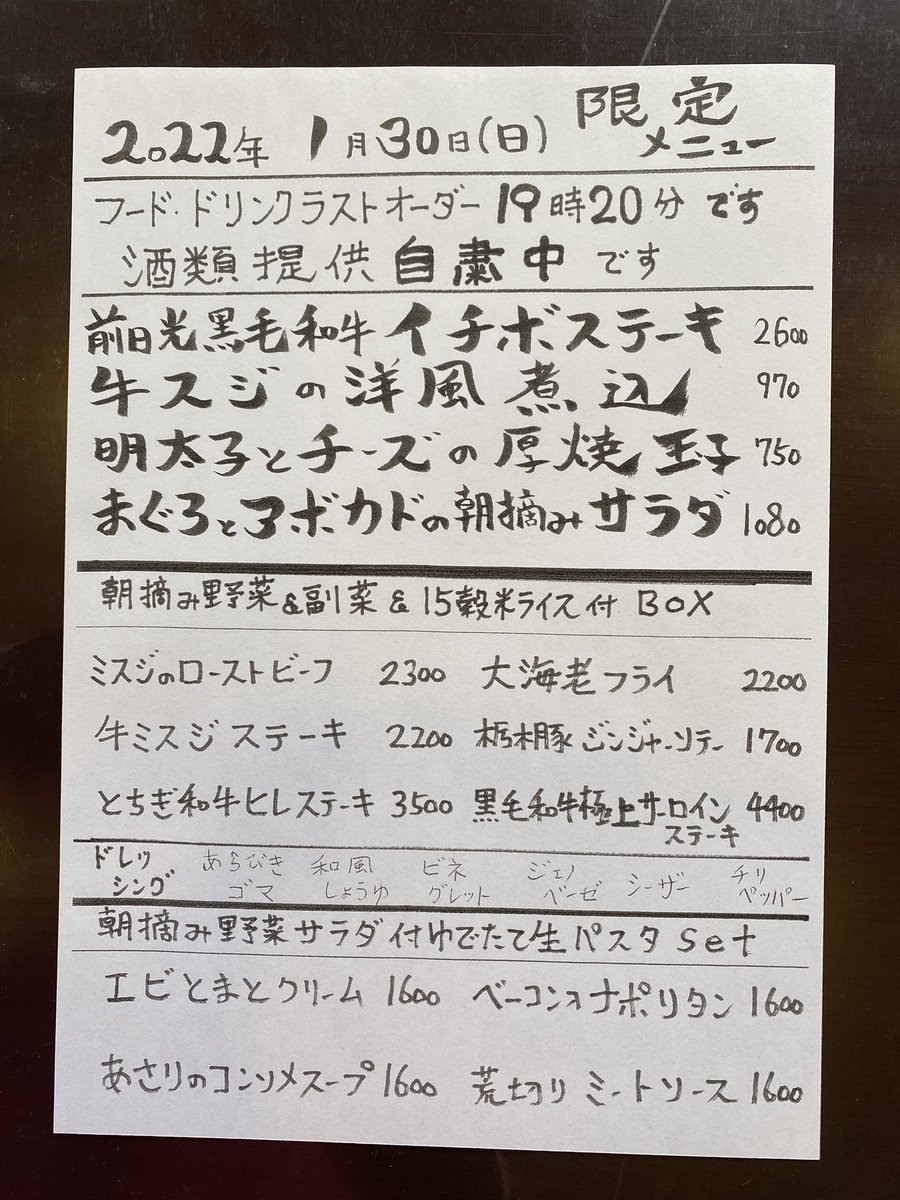 2022年 1月30日(日) 限定メニュー
フード・ドリンクラストオーダー 19時20分です
酒類提供 自粛中 です
前日光黒毛和牛イチボステーキ 2600
牛スジの洋風煮込 970
明太子とチーズの厚焼玉子 750
まぐろとアボカドの朝摘みサラダ 1080
朝摘み野菜&副菜&15穀米ライス付 BOX
ミスジのローストビーフ 2300 大海老フライ 2200
牛ミスジステーキ 2200 栃木豚ジンジャーソテー 1700
とちぎ和牛ヒレステーキ 3500 黒毛和牛極上サーロインステーキ 4400
ドレッシング あらびきゴマ 和風しょうゆ ビネグレット ジェノベーゼ シーザー チリペッパー
朝摘み野菜サラダ付ゆでたて生パスタ set
エビとまとクリーム 1600 ベーコンナポリタン 1600
あさりのコンソメスープ 1600 荒切りミートソース 1600